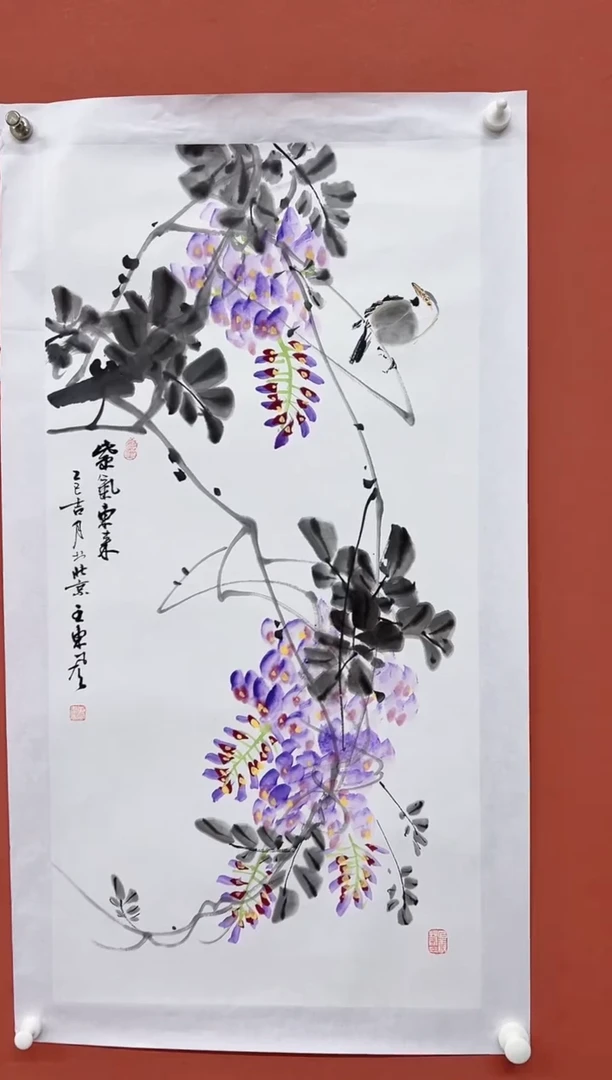 紫氣東来
乙巳吉月於北京王東風